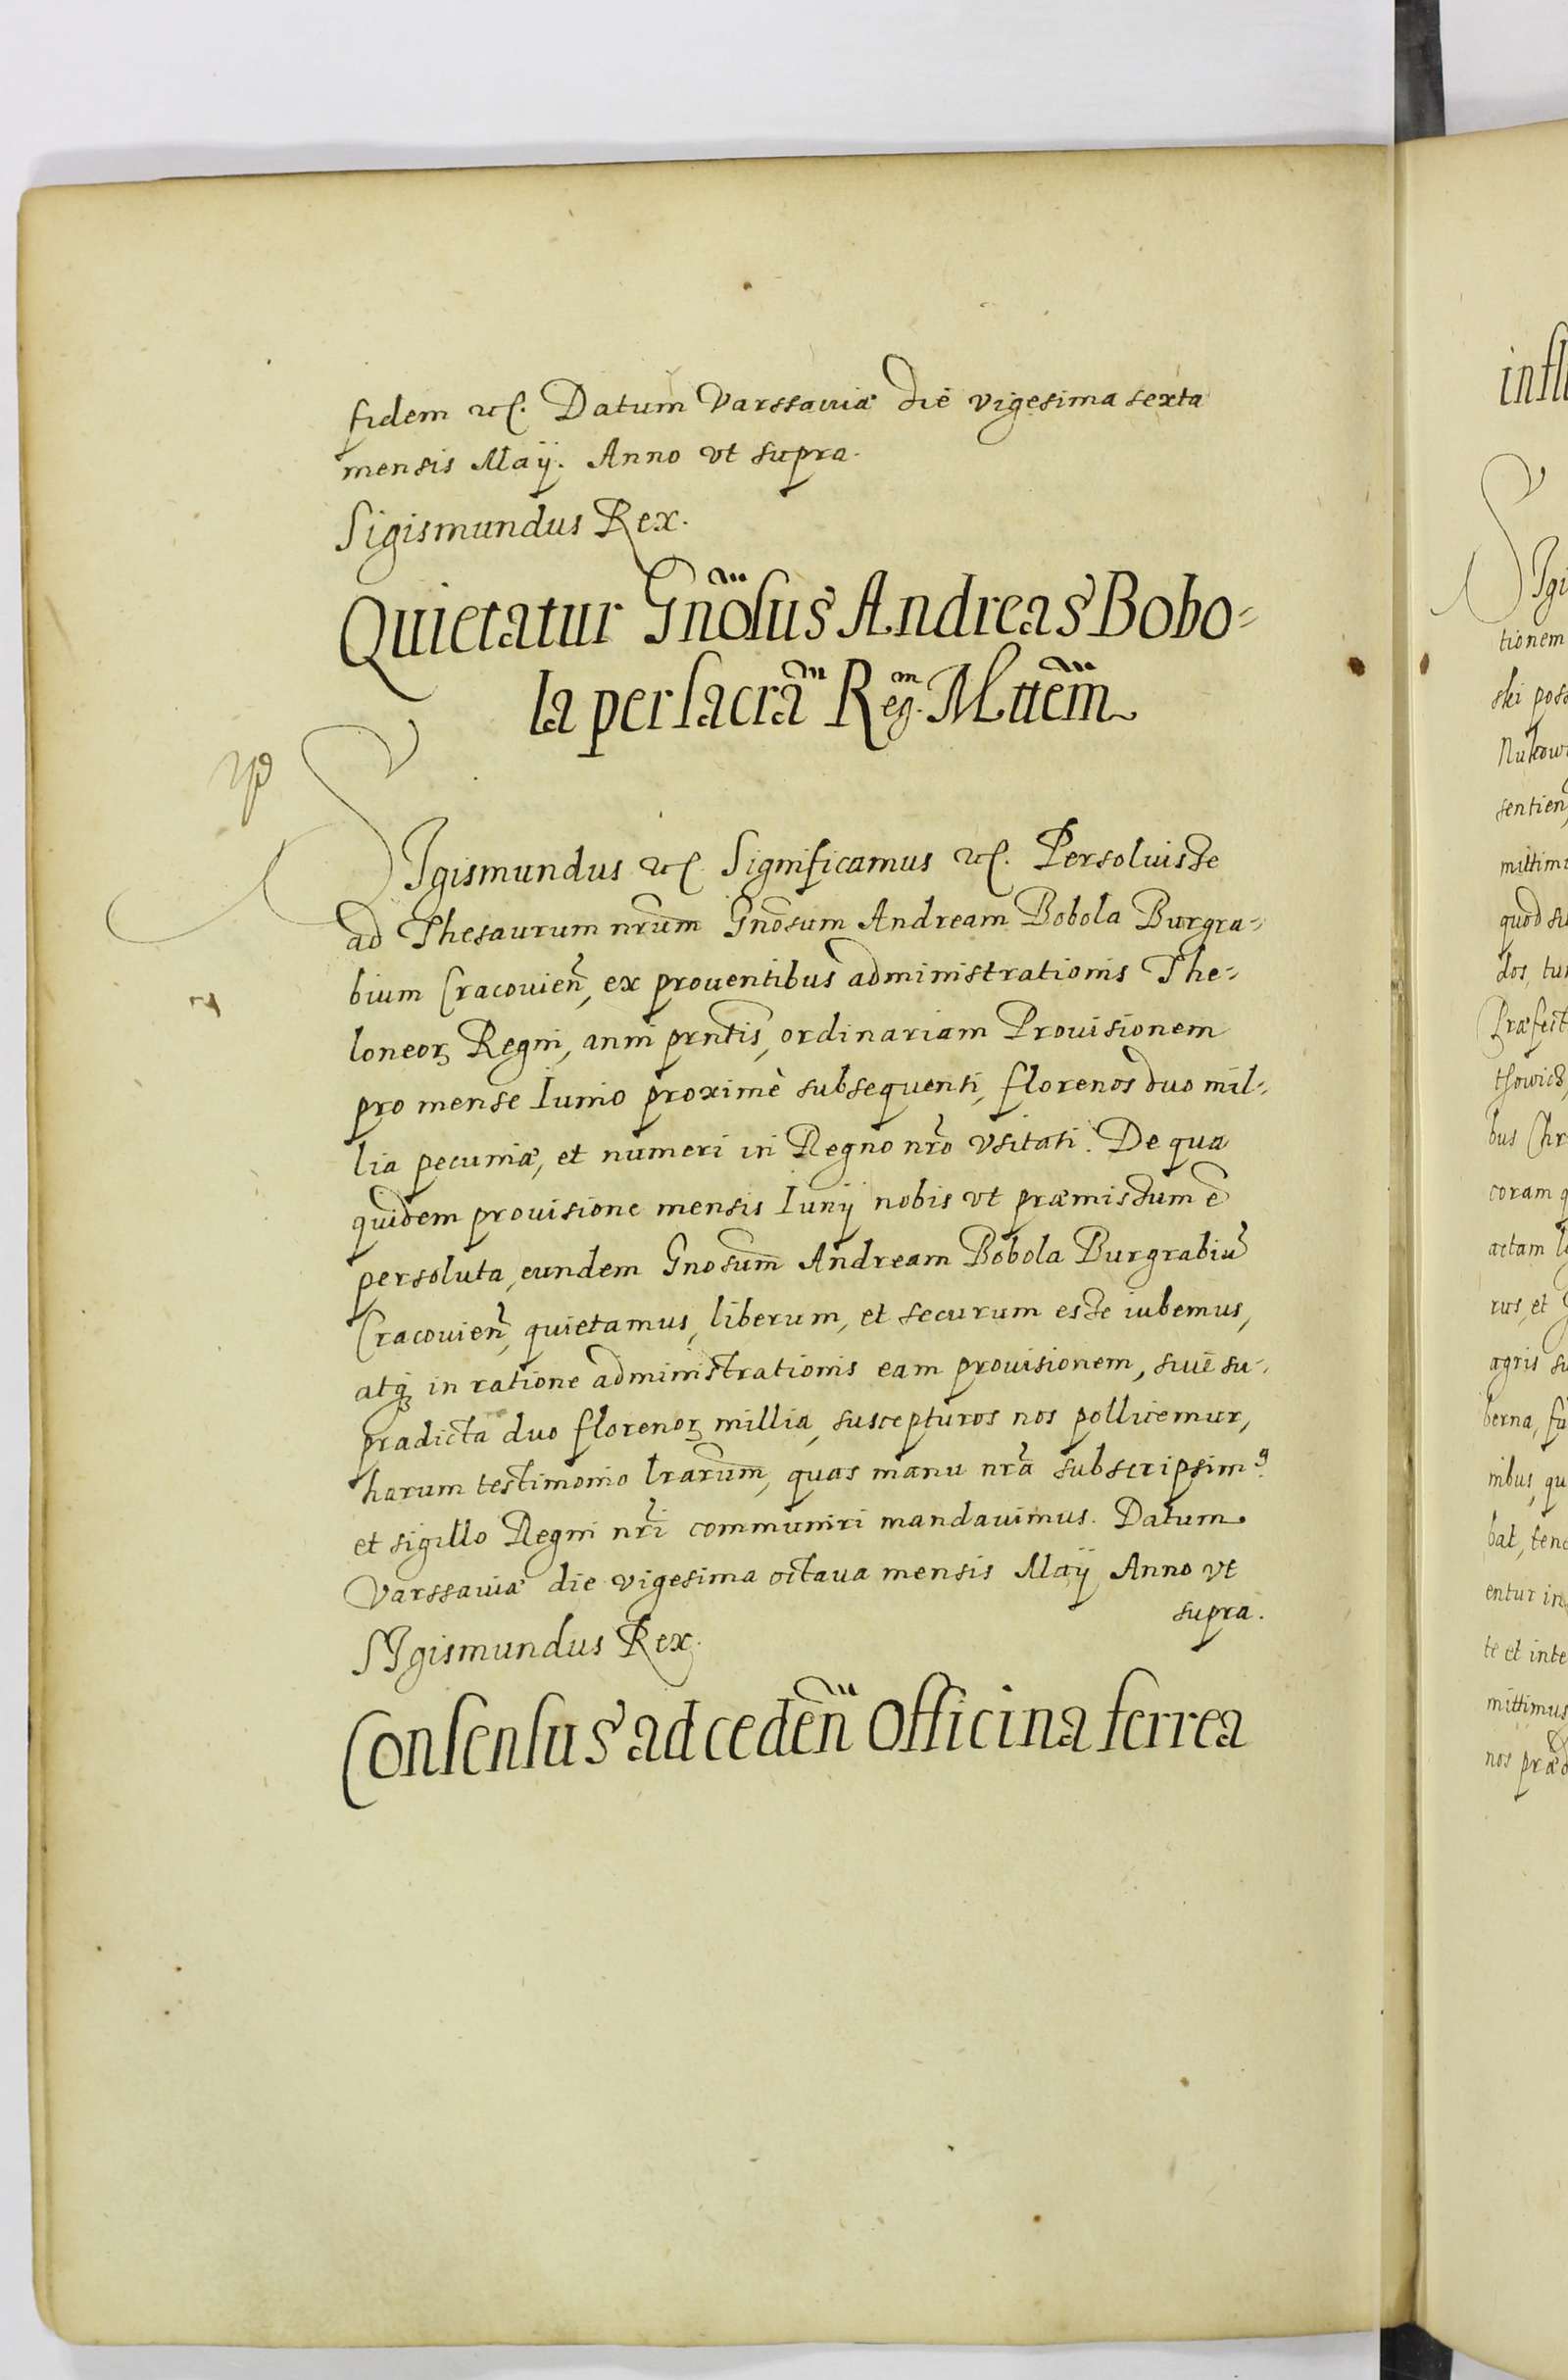 fidem etc. Datum Varssauiæ die vigesima sexta
mensis Maij. Anno vt supra.
Sigismundus Rex.
Quietatur Gn̄osus Andreas Bobo=
la per sacrā Reg.m Mttem̄
SIgismundus etc. Significamus etc. Persoluisse
ad Thesaurum nr̄um Gn̄osum Andream Bobola Burgra=
bium Cracouien̄, ex prouentibus administrationis The=
loneoꝝ Regni, anni prn̄tis, ordinariam Prouisionem
pro mense Iunio proximè subsequenti, florenos duo mil=
lia pecuniæ, et numeri in Regno nr̄o vsitati. De qua
quidem prouisione mensis Iunij nobis vt præmissum ē
persoluta, eundem Gnosum̄ Andream Bobola Burgrabiū
Cracouien̄, quietamus, liberum, et securum esse iubemus,
atqꝫ in ratione administrationis eam prouisionem, siue su=
pradicta duo florenoꝝ millia, suscepturos nos pollicemur,
harum testimonio lrarum̄, quas manu nr̄a subscripsimꝰ
et sigillo Regni nr̄i communiri mandauimus. Datum
Varssauiæ die vigesima octaua mensis Maij Anno vt
supra.
SIgismundus Rex.
Consensus ad ceden̄ Officina ferrea
infl
SIgi
tionem
ski poss
Nukow
sentien
mittimu
quod su
dos, tu
Præfect
bus Chr
coram q
actam l
rus, et
agris su
berna, fu
nibus, qu
bat, ten
entur in
te et inte
mittimus
nos præd